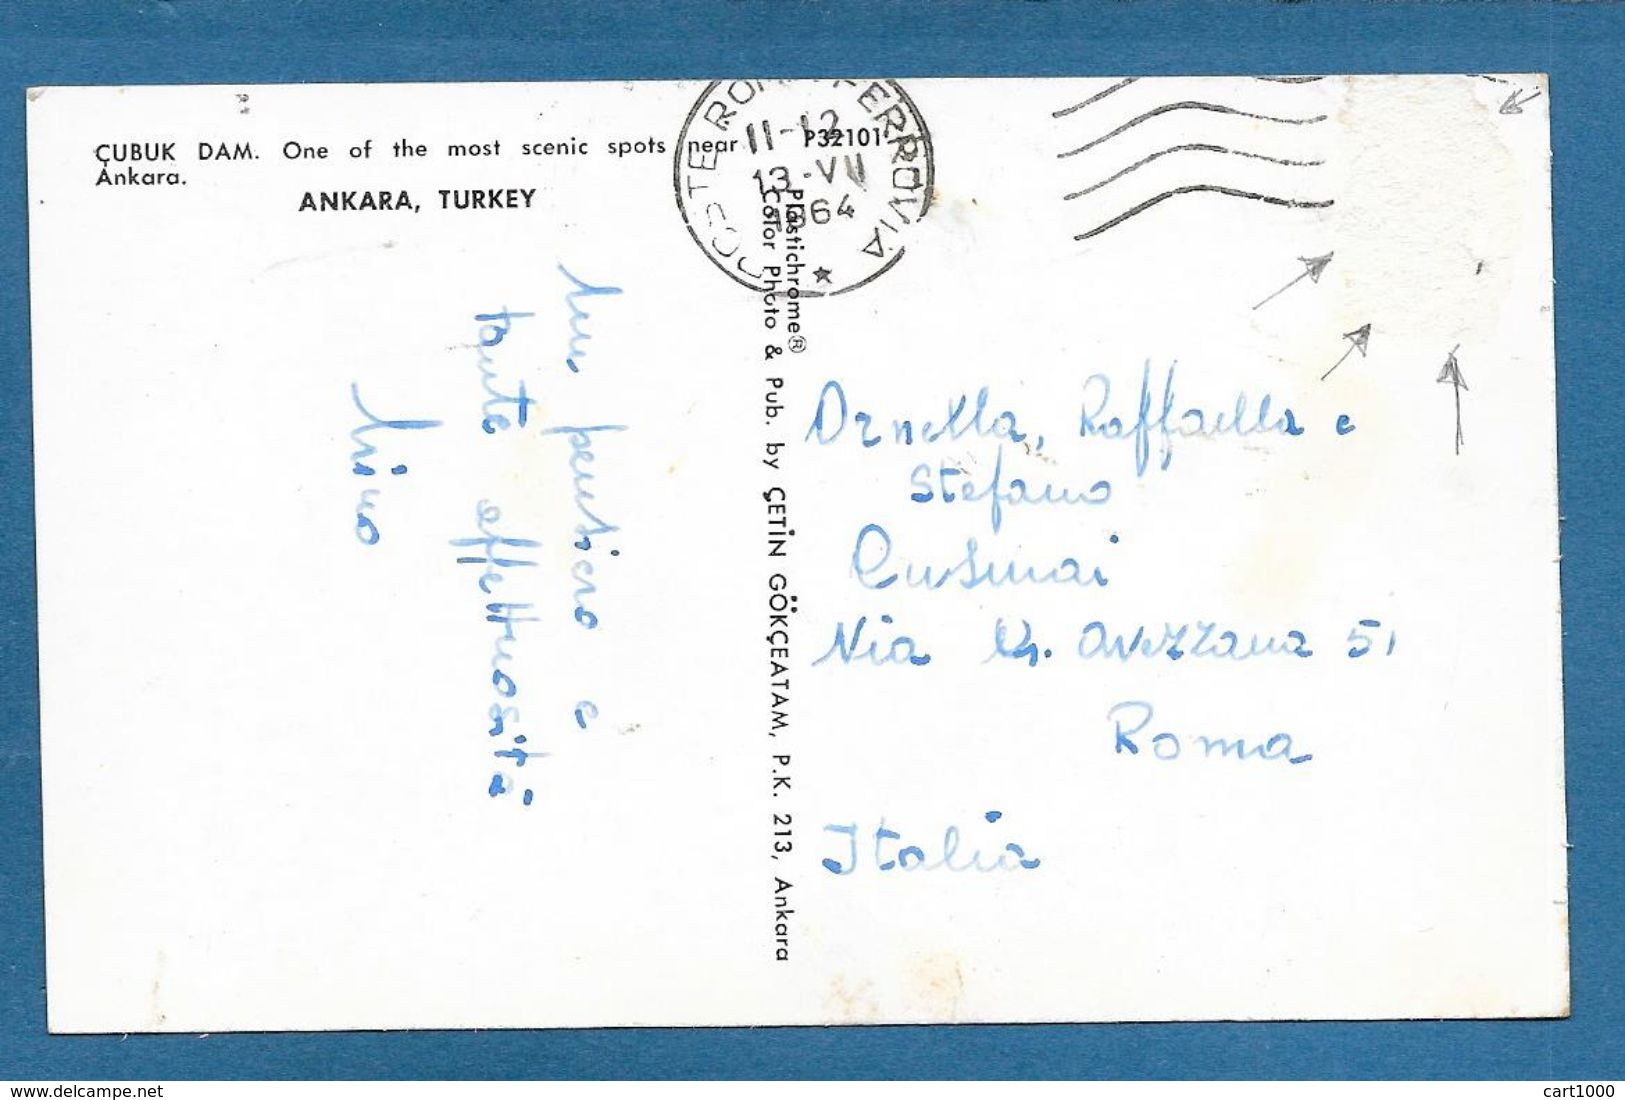 ÇUBUK DAM. One of the most scenic spots near
Ankara.
ANKARA, TURKEY
P32101
POSTE ROMA FERROVIA
11-12
13-VII
1964
Plastichrome®
Color Photo & Pub. by ÇETİN GÖKÇEATAM, P.K. 213, Ankara
Un pensiero e
tante affettuosità
Mimo
Ornella, Raffaella e
Stefano
Cusmai
Via G. Avezzana 51
Roma
Italia
https://www.delcampe.net
cart1000